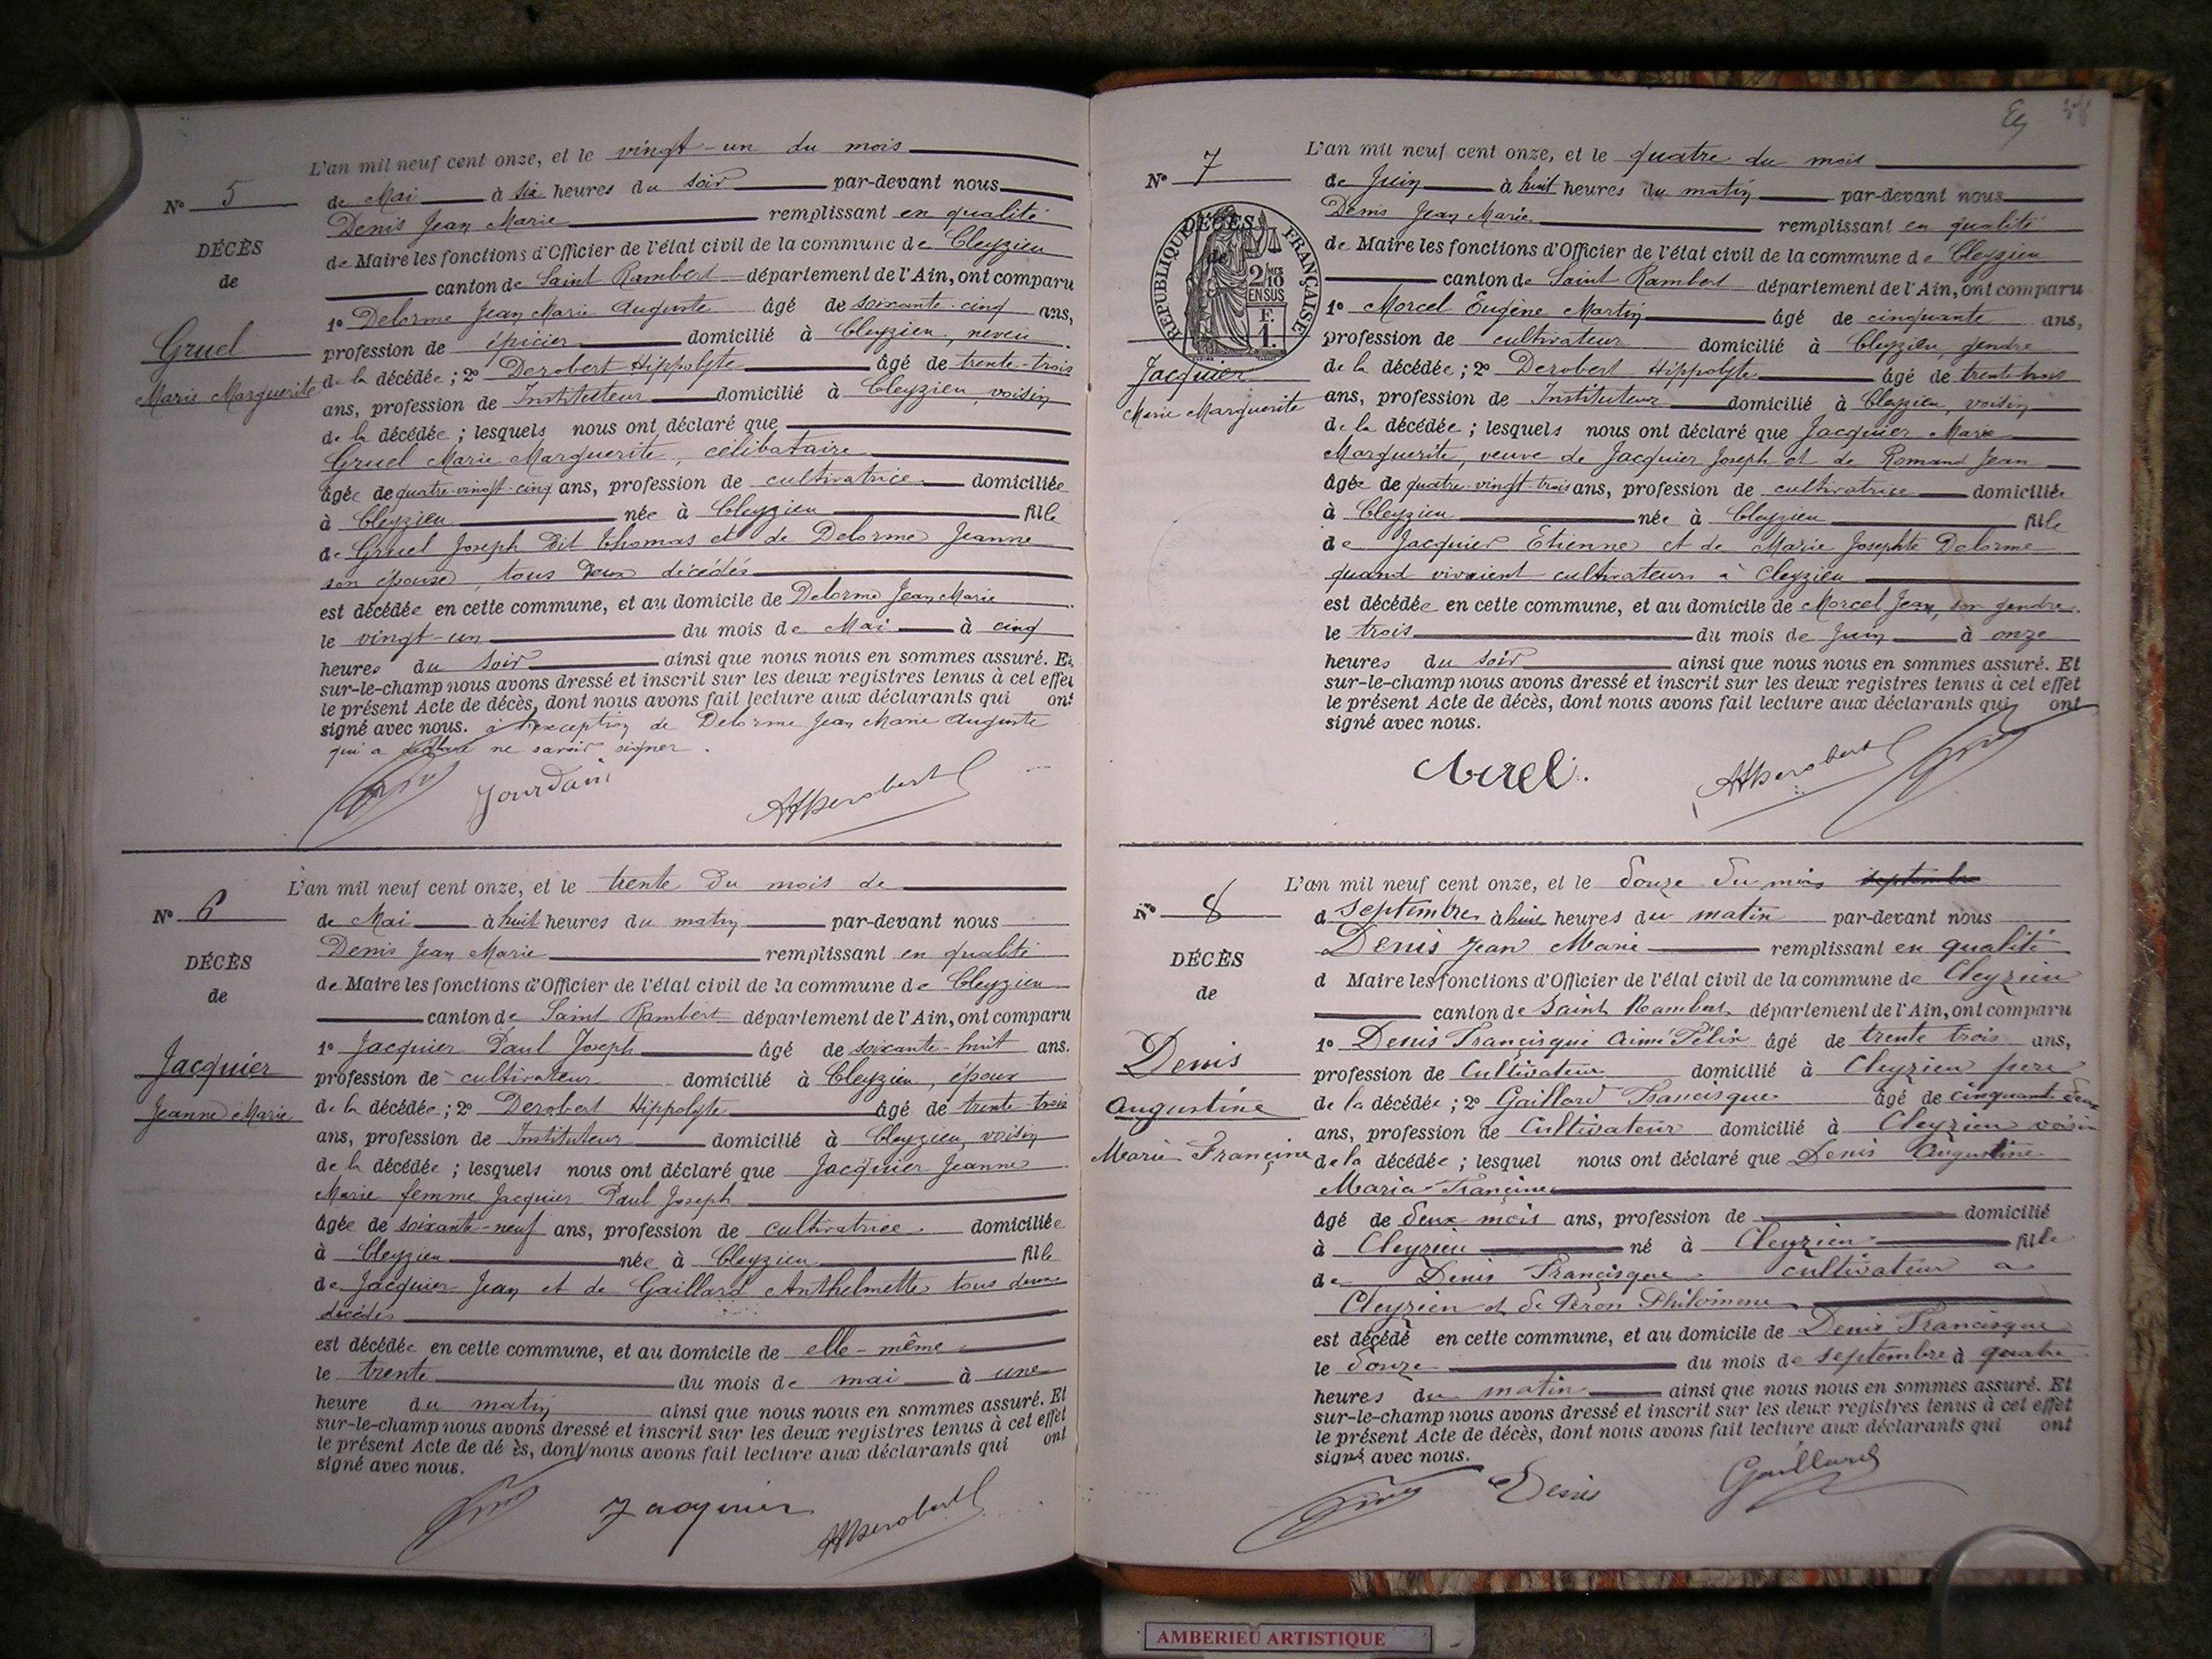 L'an mil neuf cent onze, et le vingt-un du mois
N° 5
de Mai à six heures du soir par-devant nous
Denis Jean Marie remplissant en qualité
DÉCÈS
de Maire les fonctions d'Officier de l'état civil de la commune de Cleyzieu
de
canton de Saint Rambert département de l'Ain, ont comparu
1° Delorme Jean Marie Auguste âgé de soixante-cinq ans,
Gruel
profession de épicier domicilié à Cleyzieu, neveu
Marie Marguerite
de la décédée ; 2° Derobert Hippolyte âgé de trente-trois
ans, profession de Instituteur domicilié à Cleyzieu, voisin
de la décédée ; lesquels nous ont déclaré que
Gruel Marie Marguerite, célibataire
âgée de quatre-vingt-cinq ans, profession de cultivatrice domiciliée
à Cleyzieu née à Cleyzieu fille
de Gruel Joseph dit Thomas et de Delorme Jeanne
son épouse, tous deux décédés
est décédée en cette commune, et au domicile de Delorme Jean Marie
le vingt-un du mois de Mai à cinq
heures du soir ainsi que nous nous en sommes assuré. Et
sur-le-champ nous avons dressé et inscrit sur les deux registres tenus à cet effet
le présent Acte de décès, dont nous avons fait lecture aux déclarants qui ont
signé avec nous. à l'exception de Delorme Jean Marie Auguste
qui a déclaré ne savoir signer.
Jourdain
AHDerobert
N° 6
L'an mil neuf cent onze, et le trente du mois de
de Mai à huit heures du matin par-devant nous
Denis Jean Marie remplissant en qualité
DÉCÈS
de Maire les fonctions d'Officier de l'état civil de la commune de Cleyzieu
de
canton de Saint Rambert département de l'Ain, ont comparu
1° Jacquier Paul Joseph âgé de soixante-huit ans.
Jacquier
profession de cultivateur domicilié à Cleyzieu, époux
Jeanne Marie
de la décédée ; 2° Derobert Hippolyte âgé de trente-trois
ans, profession de Instituteur domicilié à Cleyzieu, voisin
de la décédée ; lesquels nous ont déclaré que Jacquier Jeanne
Marie femme Jacquier Paul Joseph
âgée de soixante-neuf ans, profession de cultivatrice domiciliée
à Cleyzieu née à Cleyzieu fille
de Jacquier Jean et de Gaillard Anthelmette tous deux
décédés
est décédée en cette commune, et au domicile de elle-même
le trente du mois de mai à une
heure du matin ainsi que nous nous en sommes assuré. Et
sur-le-champ nous avons dressé et inscrit sur les deux registres tenus à cet effet
le présent Acte de dé ès, dont nous avons fait lecture aux déclarants qui ont
signé avec nous.
Jacquier
AHDerobert
N° 7
L'an mil neuf cent onze, et le quatre du mois
de Juin à huit heures du matin par-devant nous
Denis Jean Marie remplissant en qualité
DÉCÈS
de
RÉPUBLIQUE FRANÇAISE
2/10 EN SUS
F. 1.
de Maire les fonctions d'Officier de l'état civil de la commune de Cleyzieu
canton de Saint Rambert département de l'Ain, ont comparu
1° Morcel Eugène Martin âgé de cinquante ans,
profession de cultivateur domicilié à Cleyzieu, gendre
Jacquier
Marie Marguerite
de la décédée ; 2° Derobert Hippolyte âgé de trente-trois
ans, profession de Instituteur domicilié à Cleyzieu, voisin
de la décédée ; lesquels nous ont déclaré que Jacquier Marie
Marguerite, veuve de Jacquier Joseph et de Romand Jean
âgée de quatre-vingt trois ans, profession de cultivatrice domiciliée
à Cleyzieu née à Cleyzieu fille
de Jacquier Etienne et de Marie Josephte Delorme
quand vivaient cultivateurs à Cleyzieu
est décédée en cette commune, et au domicile de Morcel Jean, son gendre
le trois du mois de Juin à onze
heures du soir ainsi que nous nous en sommes assuré. Et
sur-le-champ nous avons dressé et inscrit sur les deux registres tenus à cet effet
le présent Acte de décès, dont nous avons fait lecture aux déclarants qui ont
signé avec nous.
AHDerobert
N° 8
L'an mil neuf cent onze, et le douze du mois septembre
d septembre à huit heures du matin par-devant nous
Denis Jean Marie remplissant en qualité
DÉCÈS
d Maire les fonctions d'Officier de l'état civil de la commune de Cleyzieu
de
canton de Saint Rambert département de l'Ain, ont comparu
1° Denis Françisque Aimé Félix âgé de trente trois ans,
Denis
profession de Cultivateur domicilié à Cleyzieu pere
Augustine
de la décédée ; 2° Gaillard Francisque âgé de cinquante deux
ans, profession de Cultivateur domicilié à Cleyzieu voisin
Marie Françine
de la décédée ; lesquel nous ont déclaré que Denis Augustine
Maria Françine
âgé de deux mois ans, profession de domicilié
à Cleyzieu né à Cleyzieu fille
de Denis Françisque cultivateur a
Cleyzieu et de Péron Philomene
est décédé en cette commune, et au domicile de Denis Francisque
le douze du mois de septembre à quatre
heures du matin ainsi que nous nous en sommes assuré. Et
sur-le-champ nous avons dressé et inscrit sur les deux registres tenus à cet effet
le présent Acte de décès, dont nous avons fait lecture aux déclarants qui ont
signé avec nous.
Denis
Gaillard
AMBERIEU ARTISTIQUE